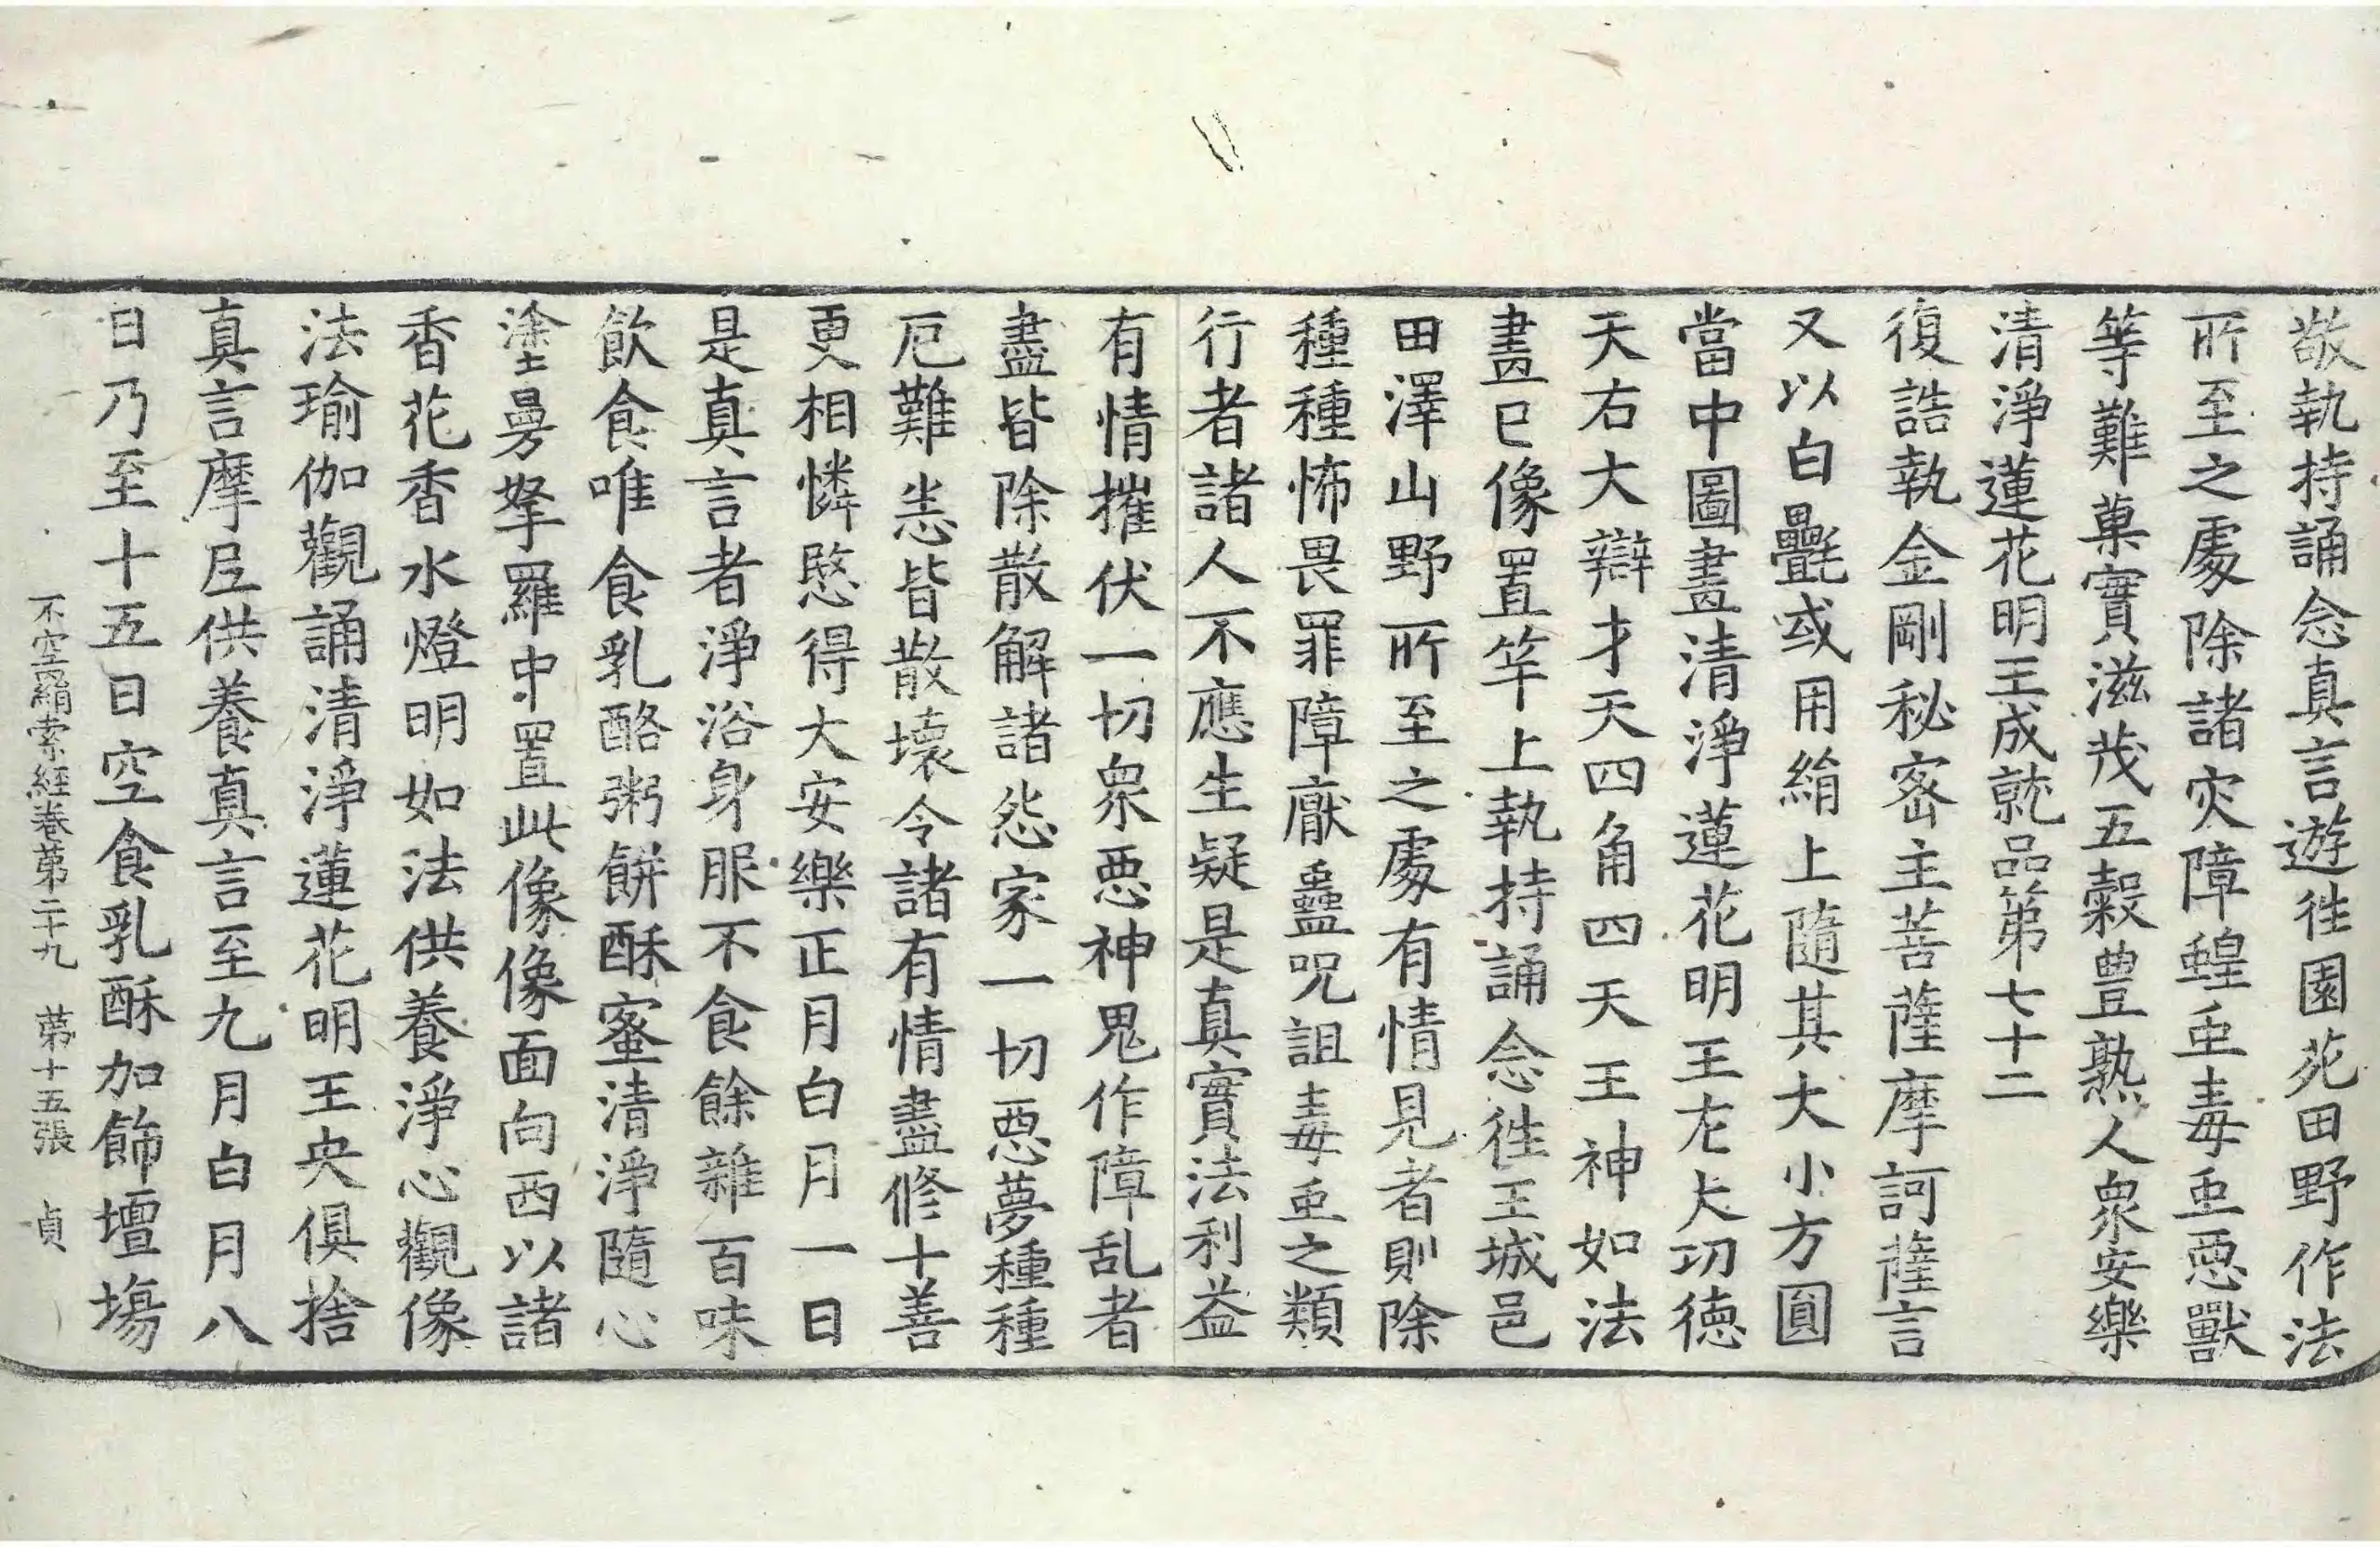 敬執持誦念真言遊往園苑田野作法
所至之處除諸灾障蝗虫毒虫惡獸
等難菓實滋茂五穀豊熟人衆安樂
清淨蓮花明王成就品第七十二
復誥執金剛秘密主菩薩摩訶薩言
又以白㲲或用絹上隨其大小方圓
當中圖畫清淨蓮花明王左大功德
天右大辯才天四角四天王神如法
畫已像置竿上執持誦念往王城邑
田澤山野所至之處有情見者則除
種種怖畏罪障厭蠱呪詛毒虫之類
行者諸人不應生疑是真實法利益
有情摧伏一切衆惡神鬼作障乱者
盡皆除散解諸怨家一切惡夢種種
厄難恙皆散壞令諸有情盡修十善
更相憐愍得大安樂正月白月一日
是真言者淨浴身服不食餘雜百味
飲食唯食乳酪粥餅酥蜜清淨隨心
塗曼拏羅中置此像像面向西以諸
香花香水燈明如法供養淨心觀像
法瑜伽觀誦清淨蓮花明王央俱捨
真言摩尼供養真言至九月白月八
日乃至十五日空食乳酥加飾壇場
不空羂索經卷第二十九 第十五張 貞